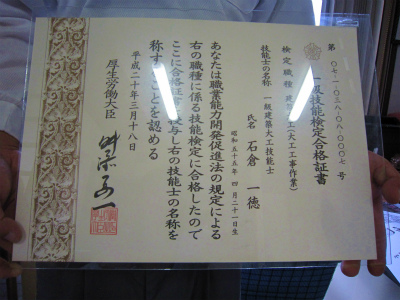 第 〇七一-〇三八-〇八-〇〇〇七 号
一級技能検定合格証書
検定職種 建築大工(大工工事作業)
技能士の名称 一級建築大工技能士
氏名 石倉 一徳
昭和五十五年 四月二十一日生
あなたは職業能力開発促進法の規定による
右の職種に係る技能検定に合格したので
ここに合格証書を授与し右の技能士の名称を
称することを認める
平成二十年三月十八日
厚生労働大臣